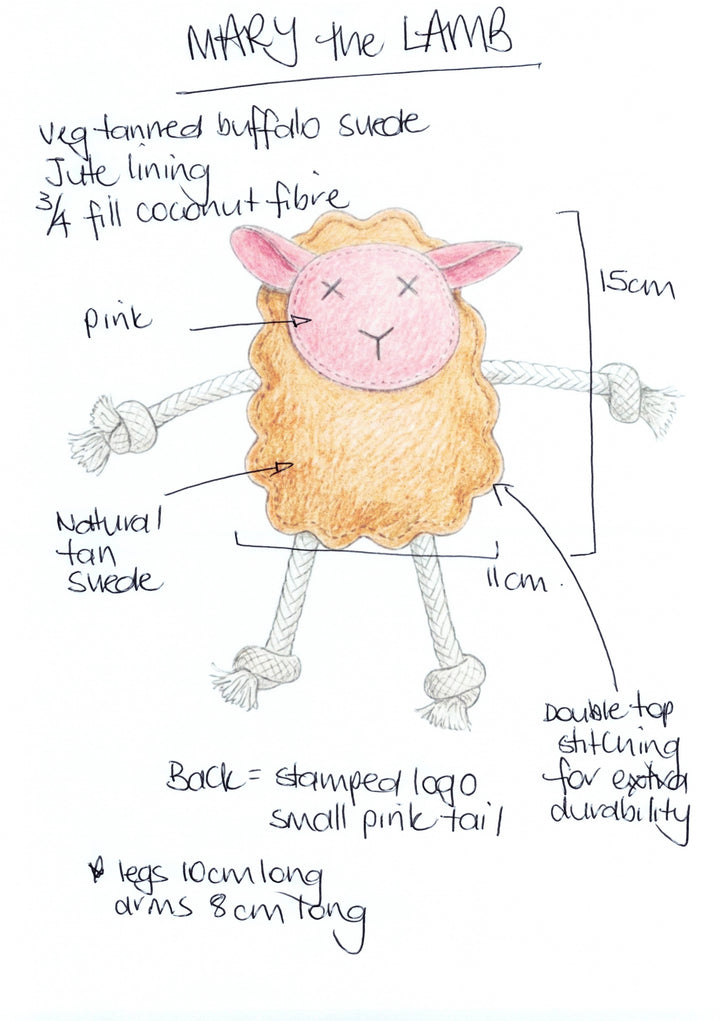 MARY the LAMB
Veg tanned buffalo suede
Jute lining
3/4 fill coconut fibre
15cm
pink
Natural
tan
suede
11cm.
Double top
stitching
for extra
durability
Back = stamped logo
small pink tail
* legs 10cm long
arms 8cm long